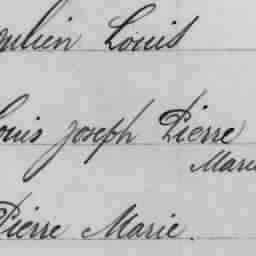 Louis
Louis Joseph Pierre
Marie
Pierre Marie.